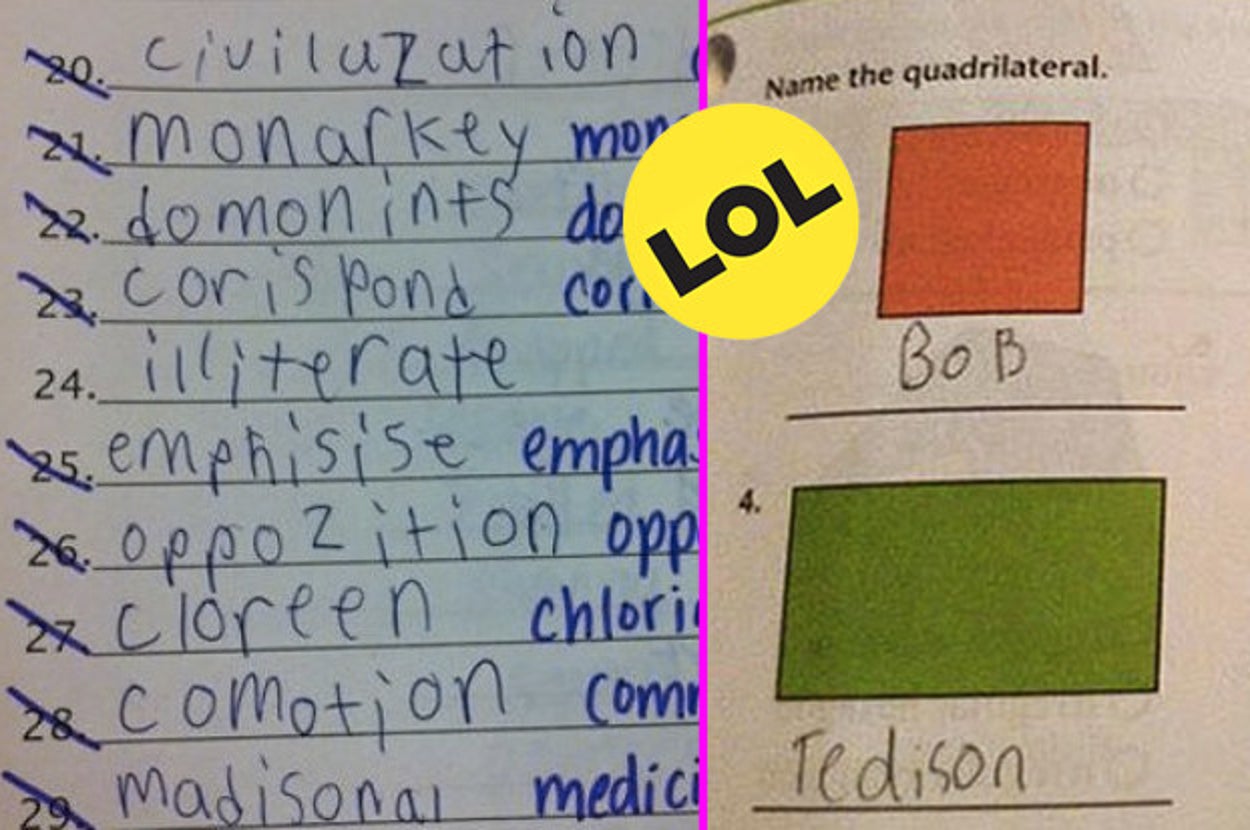 20. civilazation
21. monarkey mon
22. domonints do
23. corispond cor
24. illiterate
25. emphisise empha
26. oppozition opp
27. cloreen chlori
28. comotion com
29. madisonal medici
LOL
Name the quadrilateral.
BoB
4.
Tedison